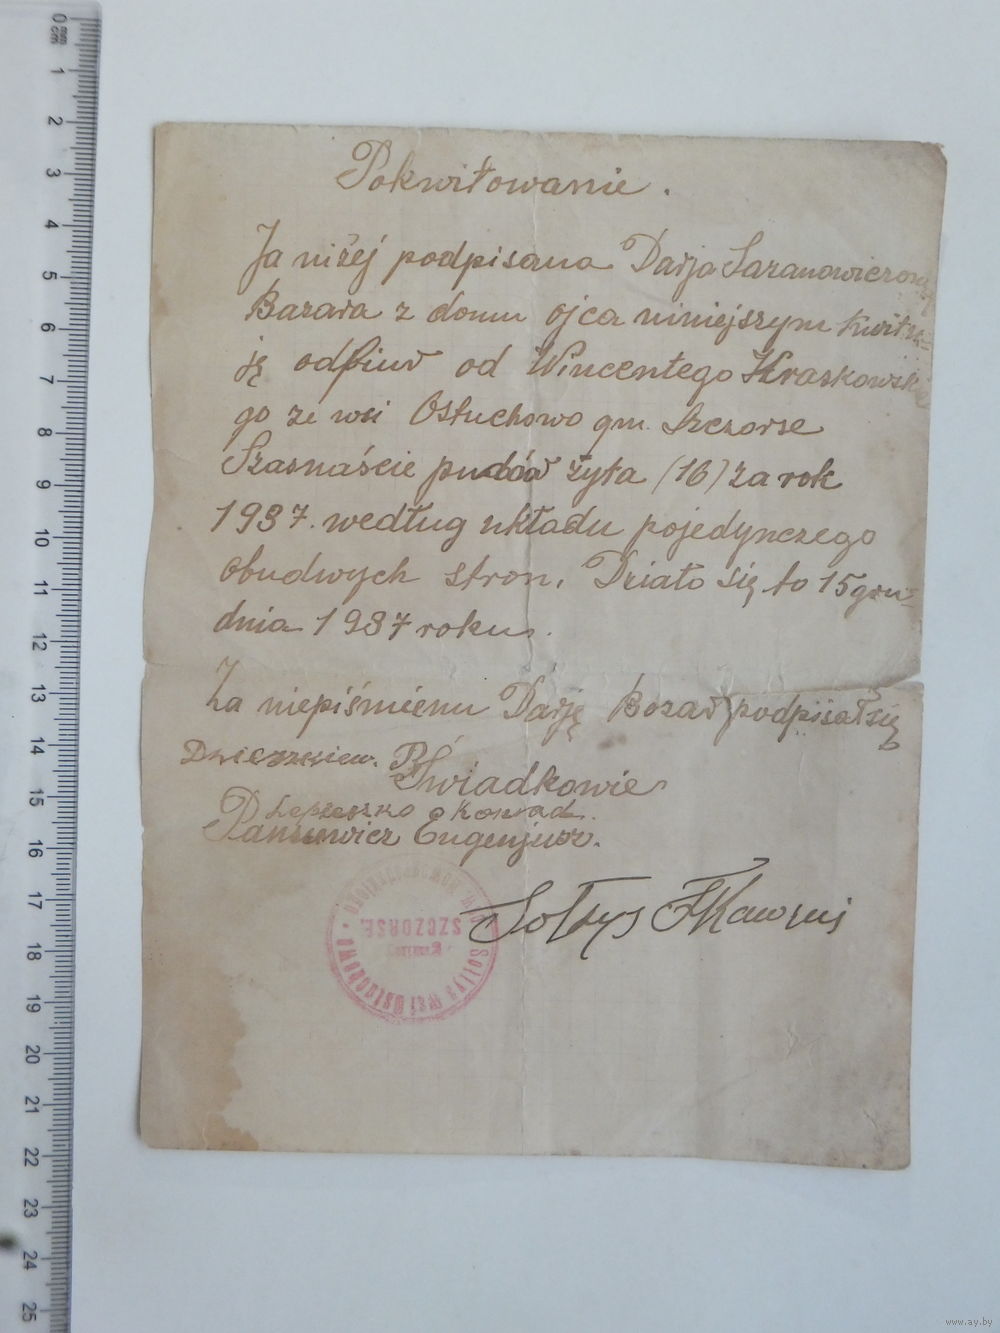 Pokwitowanie.
Ja niżej podpisana Darja Saranowiczowa
Bazara z domu ojca niniejszym kwitu=
ję odbiur od Wincentego Kraskowskie
go ze wsi Ostuchowo gm. Szczorse
Szasnaście pudów żyta (16) za rok
1937. według układu pojedynczego
obudwych stron. Działo się to 15 gru=
dnia 1937 roku.
Za niepiśmienu Darję Bozar podpisał się
Świadkowie
Lepeszko Konrad.
Eugenjusz.
Sołtys
Sołtys wsi Ostachowo • pow. nowogródzkiego •
Gminy
SZCZORSE
0 mm
cm
1
2
3
4
5
6
7
8
9
10
11
12
13
14
15
16
17
18
19
20
21
22
23
24
25
www.ay.by